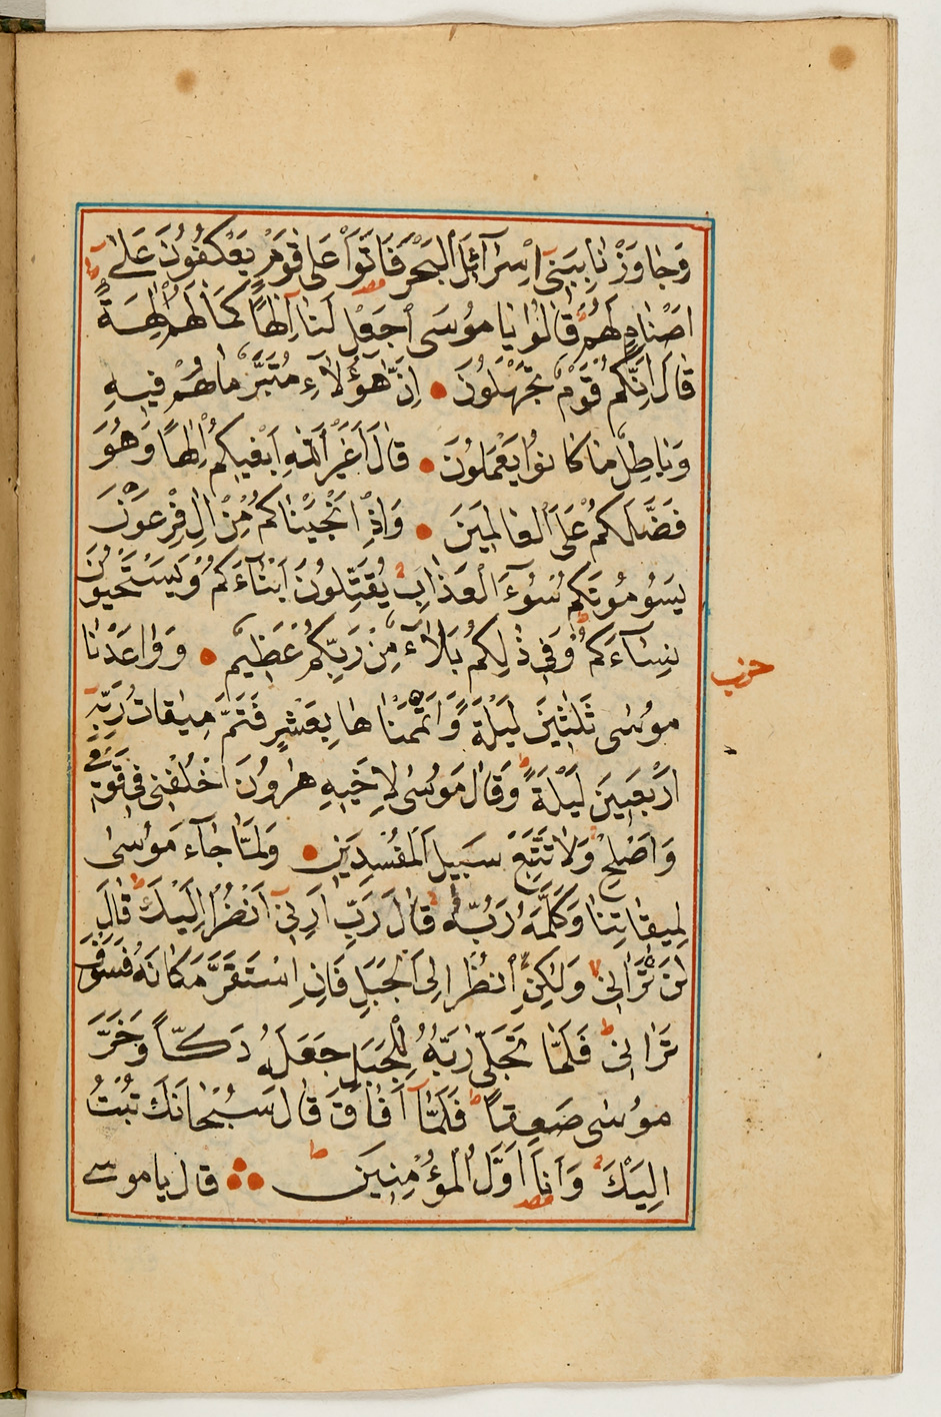 وَجَاوَزْنَا بِبَنِي اِسْرَآئِلَ الْبَحْرَ فَاَتَوْا عَلٰى قَوْمٍ يَعْكُفُونَ عَلٰى
اَصْنَامٍ لَهُمْ قَالُوا يَا مُوسَى اجْعَلْ لَنَا اِلٰهًا كَمَا لَهُمْ اٰلِهَةٌ
قَالَ اِنَّكُمْ قَوْمٌ تَجْهَلُونَ • اِنَّ هٰٓؤُلَآءِ مُتَبَّرٌ مَا هُمْ فِيهِ
وَبَاطِلٌ مَا كَانُوا يَعْمَلُونَ • قَالَ اَغَيْرَ اللّٰهِ اَبْغِيكُمْ اِلٰهًا وَهُوَ
فَضَّلَكُمْ عَلَى الْعَالَمِينَ • وَاِذْ اَنْجَيْنَاكُمْ مِنْ اٰلِ فِرْعَوْنَ
يَسُومُونَكُمْ سُوٓءَ الْعَذَابِ يُقَتِّلُونَ اَبْنَآءَكُمْ وَيَسْتَحْيُونَ
نِسَآءَكُمْ وَفِي ذٰلِكُمْ بَلَآءٌ مِنْ رَبِّكُمْ عَظِيمٌ • وَوَاعَدْنَا
مُوسٰى ثَلٰثِينَ لَيْلَةً وَاَتْمَمْنَاهَا بِعَشْرٍ فَتَمَّ مِيقَاتُ رَبِّهِ
اَرْبَعِينَ لَيْلَةً وَقَالَ مُوسٰى لِاَخِيهِ هٰرُونَ اخْلُفْنِي فِي قَوْمِي
وَاَصْلِحْ وَلَا تَتَّبِعْ سَبِيلَ الْمُفْسِدِينَ • وَلَمَّا جَآءَ مُوسٰى
لِمِيقَاتِنَا وَكَلَّمَهُ رَبُّهُ قَالَ رَبِّ اَرِنِي اَنْظُرْ اِلَيْكَ قَالَ
لَنْ تَرَانِي وَلٰكِنِ انْظُرْ اِلَى الْجَبَلِ فَاِنِ اسْتَقَرَّ مَكَانَهُ فَسَوْفَ
تَرَانِي فَلَمَّا تَجَلّٰى رَبُّهُ لِلْجَبَلِ جَعَلَهُ دَكًّا وَخَرَّ
مُوسٰى صَعِقًا فَلَمَّآ اَفَاقَ قَالَ سُبْحَانَكَ تُبْتُ
اِلَيْكَ وَاَنَا اَوَّلُ الْمُؤْمِنِينَ ∴ قَالَ يَا مُوسٰى
حزب